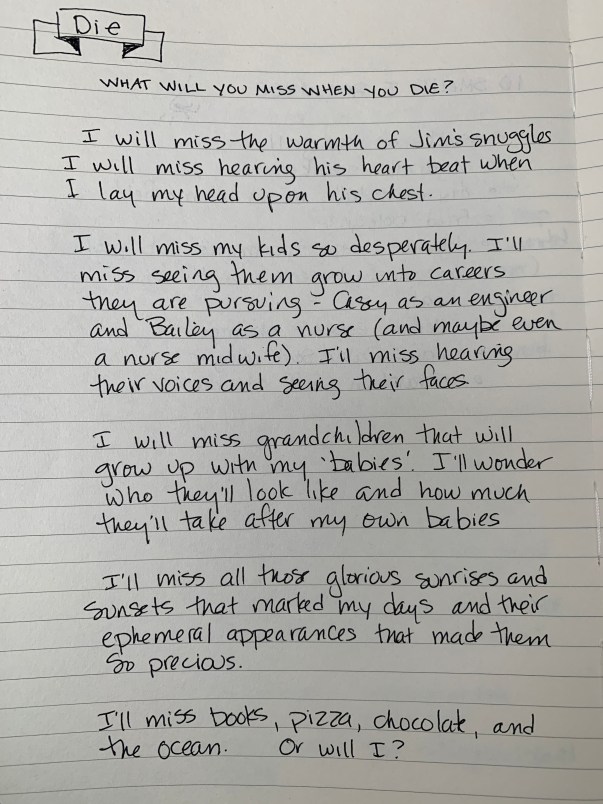 Die
WHAT WILL YOU MISS WHEN YOU DIE?
I will miss the warmth of Jim's snuggles
I will miss hearing his heart beat when
I lay my head upon his chest.
I will miss my kids so desperately. I'll
miss seeing them grow into careers
they are pursuing - Casey as an engineer
and Bailey as a nurse (and maybe even
a nurse midwife). I'll miss hearing
their voices and seeing their faces.
I will miss grandchildren that will
grow up with my 'babies'. I'll wonder
who they'll look like and how much
they'll take after my own babies
I'll miss all those glorious sunrises and
sunsets that marked my days and their
ephemeral appearances that made them
so precious.
I'll miss books, pizza, chocolate, and
the ocean. Or will I?